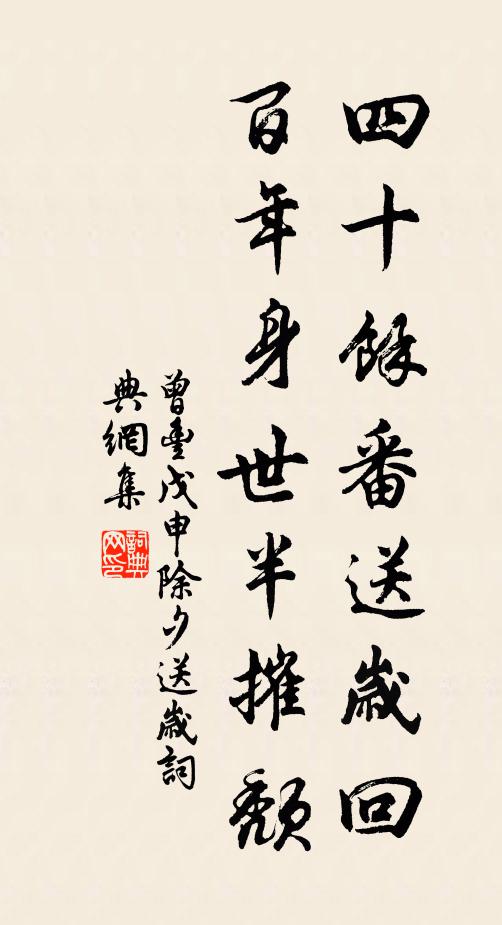 四十餘番送歲回
百年身世半摧頹
曾豐戊申除夕送歲詞
典網集
詞典
网印